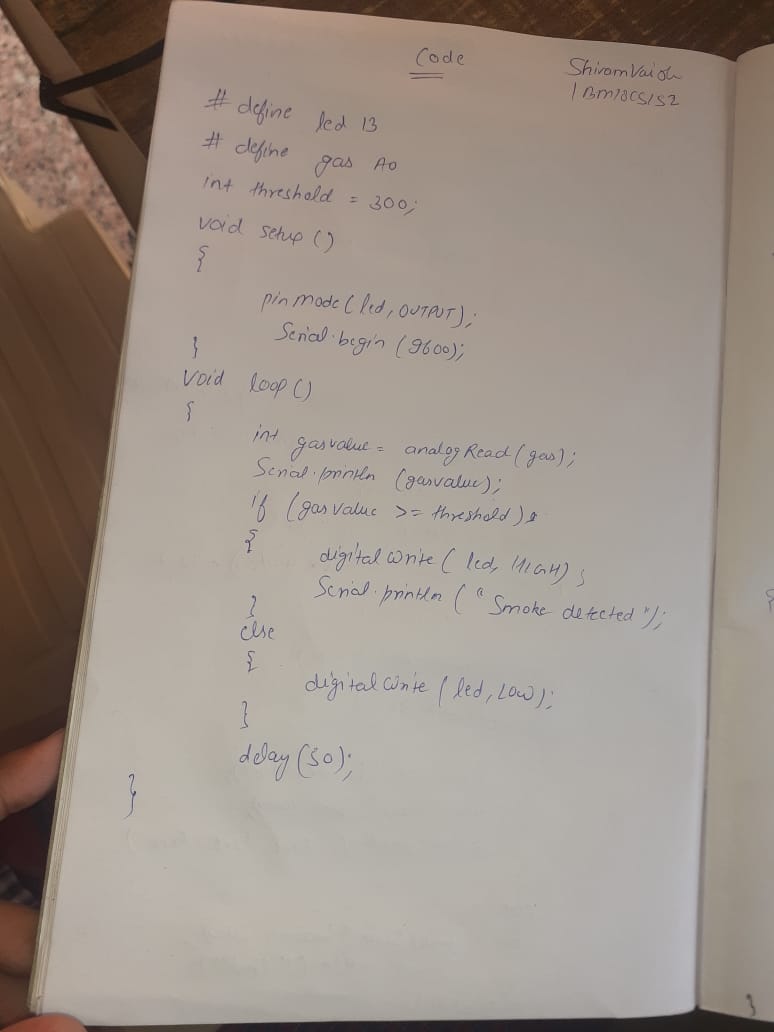 Code
Shivam Vaish
1BM18CS152
# define led 13
# define gas A0
int threshold = 300;
void setup ()
{
pinMode ( led, OUTPUT);
Serial.begin (9600);
}
void loop ()
{
int gasvalue = analogRead (gas);
Serial.println (gasvalue);
if (gasvalue >= threshold)
{
digitalWrite ( led, HIGH) ;
Serial.println ( " Smoke detected ");
}
else
{
digitalWrite ( led, LOW);
}
delay (50);
}
}